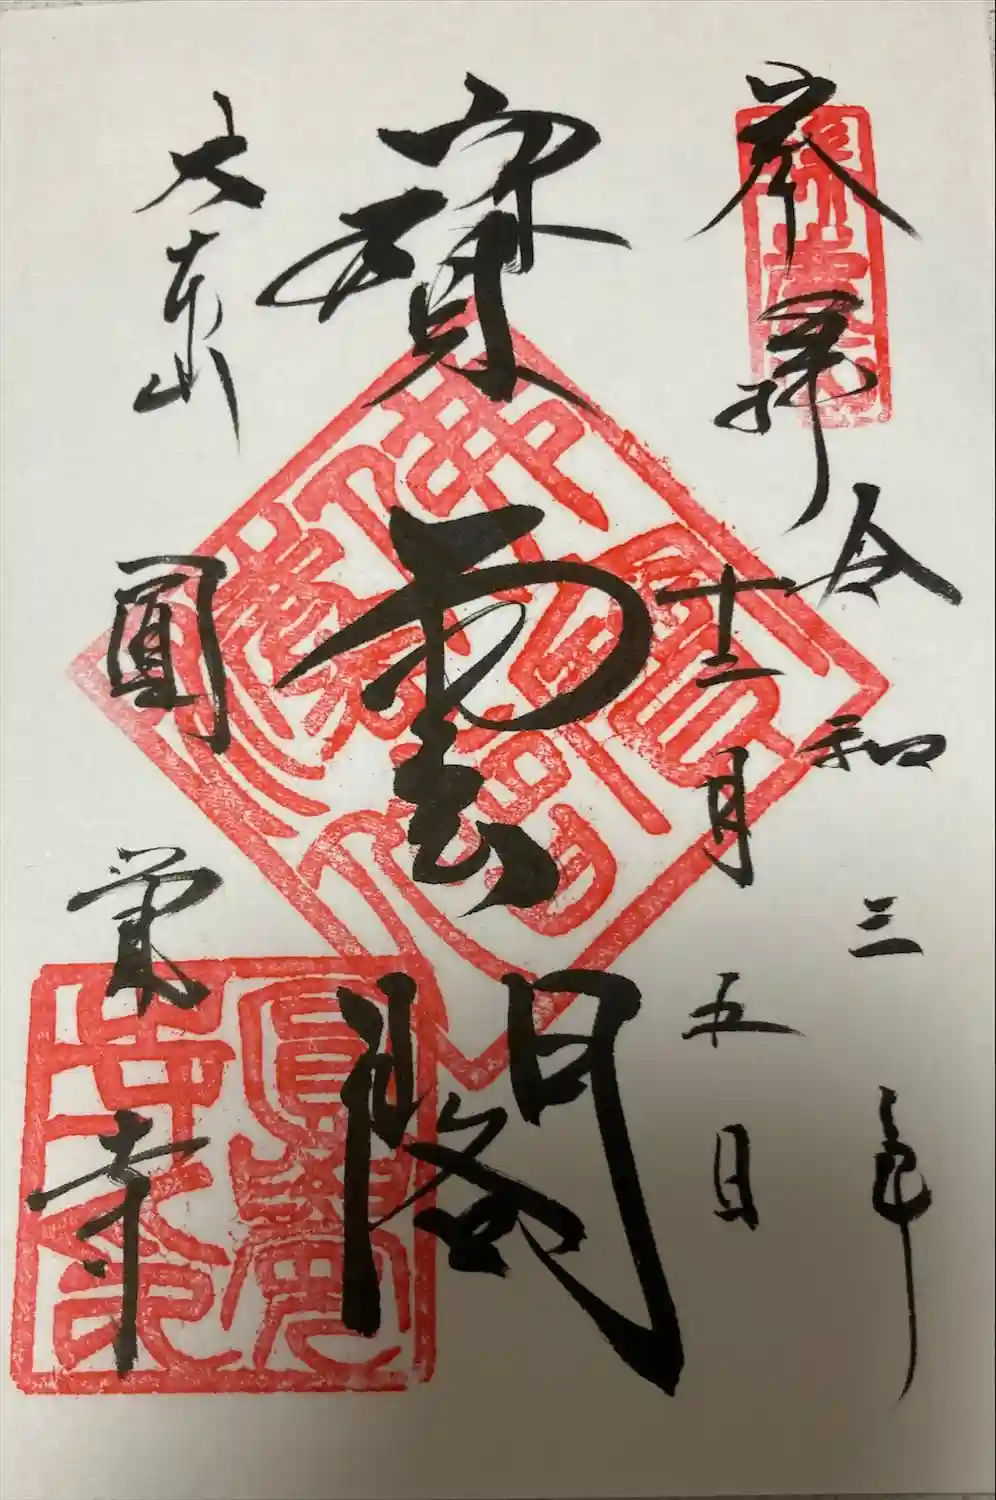 奉拝
令和三年
十二月五日
寶雲閣
大本山
圓覚寺